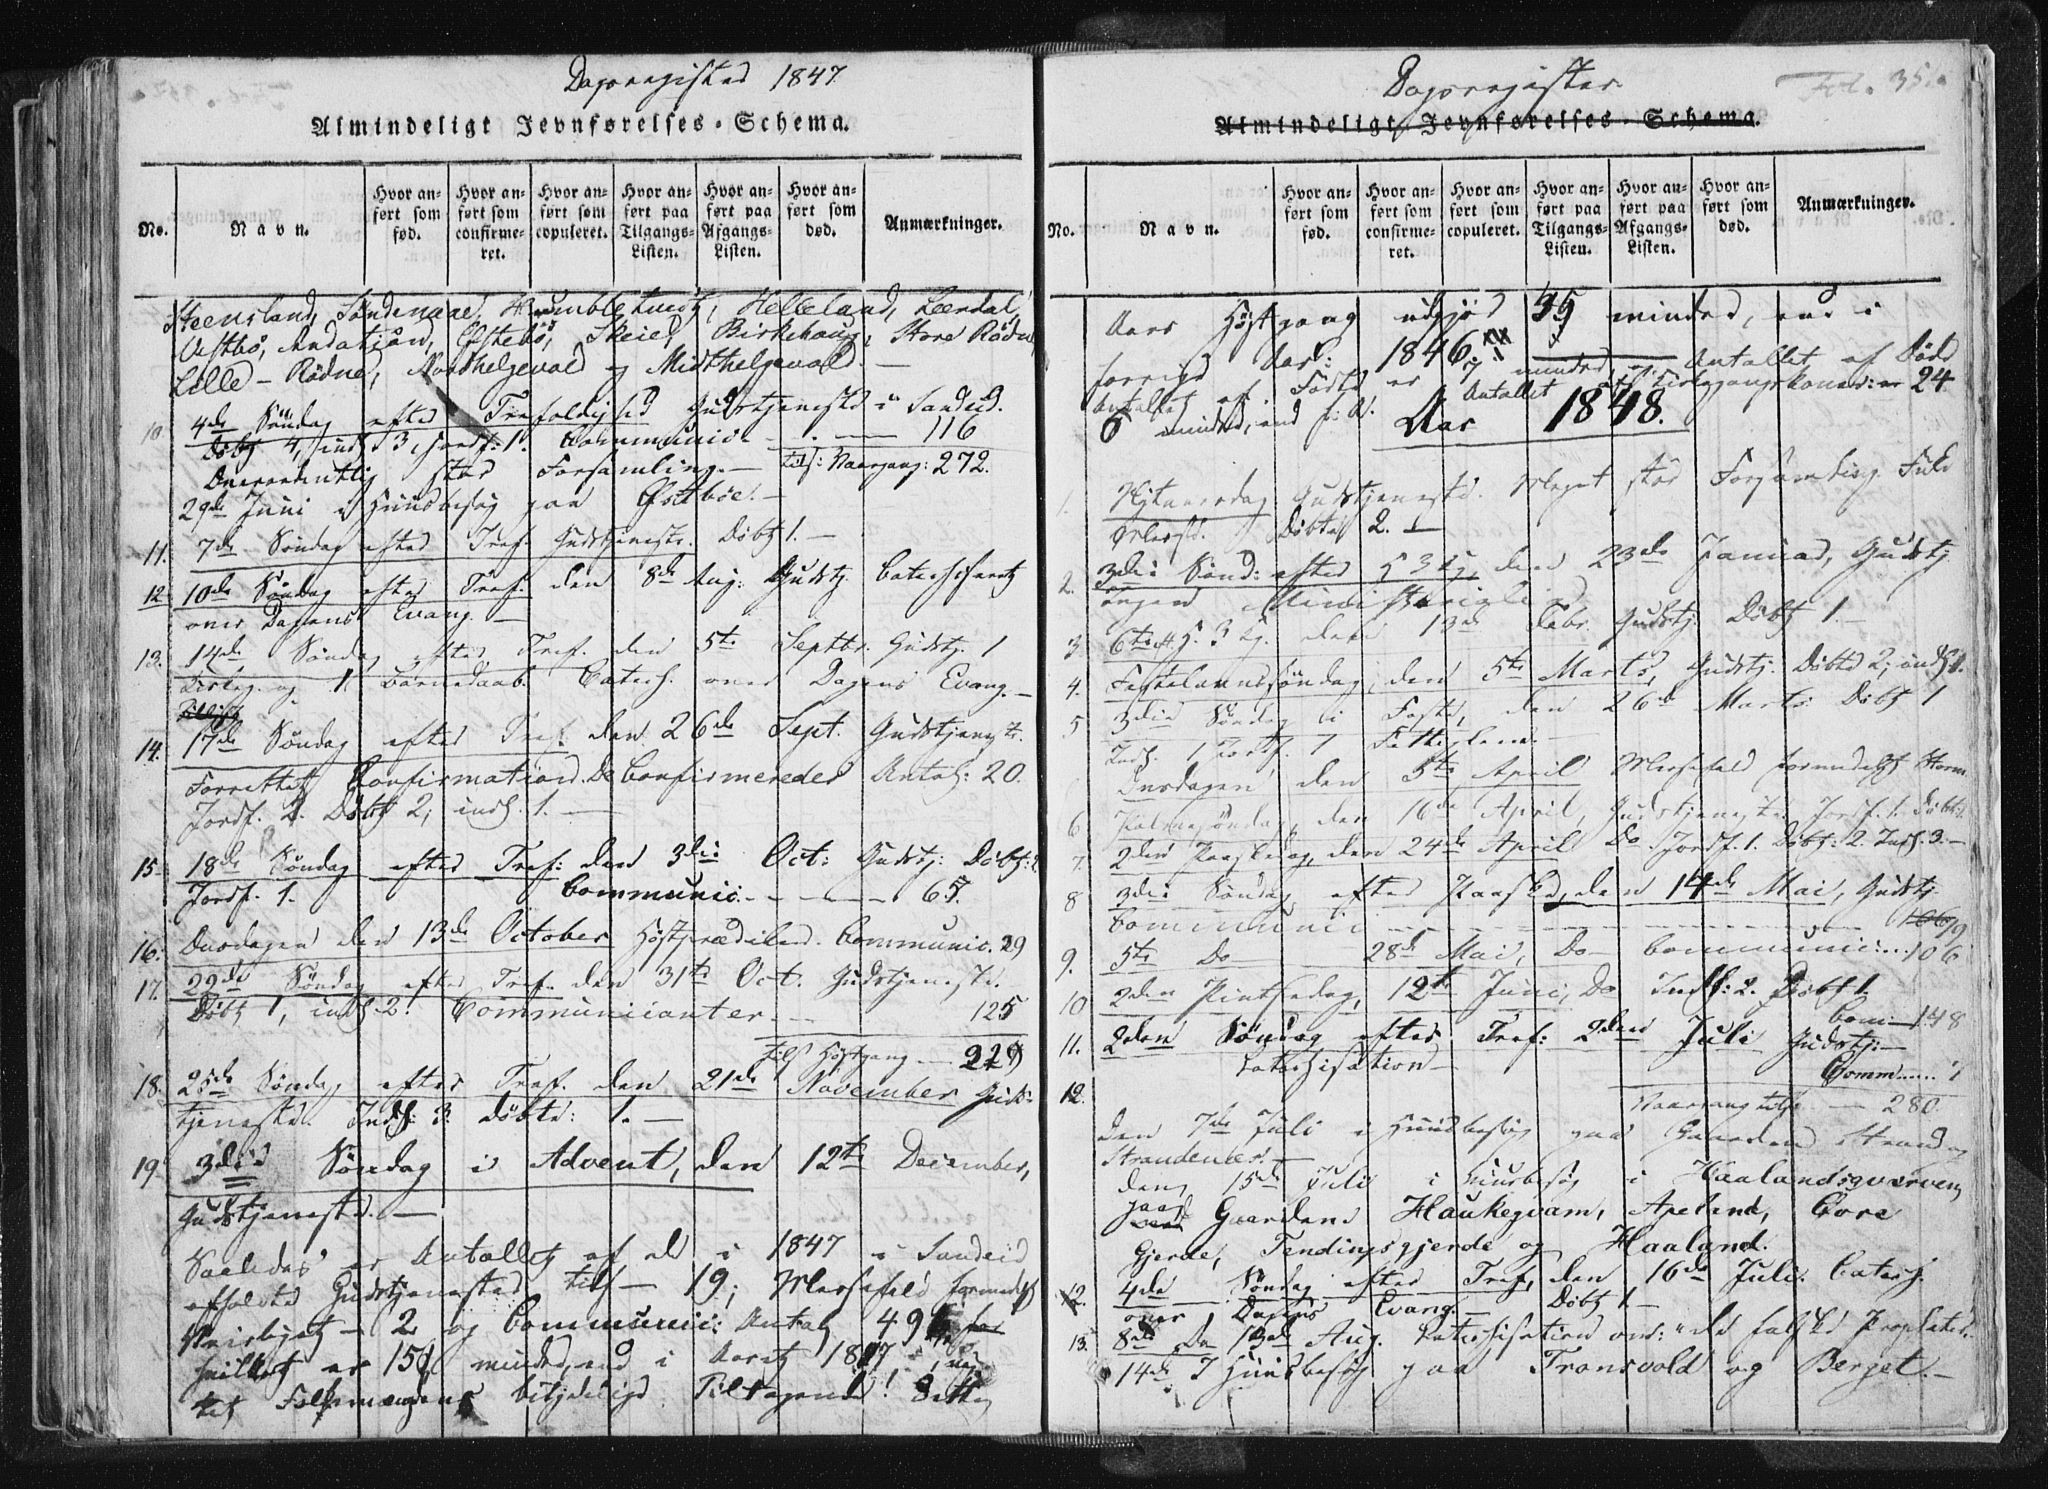 Dagsregister 1847
Almindeligt Jevnførelses-Schema.
No.
Navn.
Hvor anført som fød.
Hvor anført som confirmeret.
Hvor anført som copuleret.
Hvor anført paa Tilgangs-Listen.
Hvor anført paa Afgangs-Listen.
Hvor anført som død.
Anmærkninger.
Steensland, Søndenaae, Humbletvedt, Helleland, Leerdal,
Vestbø, Østebø, Skeie, Birkehaug, Store Rødne
Lille-Rødne, Nordhelgevold og Midthelgevold.
10. 4de Søndag efter Trefoldighed Gudstjeneste i Sandeid.
Døbt 4, indl. 3, Jordf. 1. Communic. - - - 116
Overordentlig stor Forsamling. - tils: Vaargang: 272.
29de Juni i Huusbesøg paa Østbøe. -
11. 7de Søndag efter Tref. Gudstjeneste. Døbt 1. -
12. 10de Søndag efter Tref. den 8de Aug: Gudstj. Catechiseret
over Dagens Evang. -
13. 14de Søndag efter Tref. den 5te Septbr. Gudstj. 1
og 1 Barnedaab. Catech. over Dagens Evang. -
14. 17de Søndag efter Tref. den 26de Sept. Gudstjeneste.
Forrettet Confirmation. De Confirmeredes Antal: 20.
Jordf. 2. Døbt 2; indl. 1. -
15. 18de Søndag efter Tref: den 3die Oct: Gudstj: Døbt: 2
Jordf. 1. Communic. - - - - 65.
16. Onsdagen den 13de October Høstprædiken. Communic. 29
17. 22de Søndag efter Tref. den 31te Oct. Gudstjeneste.
Døbt 1, indl. 2. Communicanter. - 125
tils Høstgang - 219
18. 25de Søndag efter Tref. den 21de November Guds-
tjeneste. Indl: 3. døbte: 1. -
19. 3die Søndag i Advent, den 12te December,
Gudstjeneste. -
Saaledes er Antallet af de i 1847 i Sandeid
afholdte Gudstjenester tils - 19; Messefald formedelst
Veirliget - 2 og Communic: Antal 491
hvilket er 151 mindre, end i Aaret
Folkemængdens betydelige Tiltagende! Dette
Dagsregister
Fol. 35
Almindeligt Jevnførelses-Schema.
No.
Navn.
Hvor anført som fød.
Hvor anført som confirmeret.
Hvor anført som copuleret.
Hvor anført paa Tilgangs-Listen.
Hvor anført paa Afgangs-Listen.
Hvor anført som død.
Anmærkninger.
Aars Høstgang udgjør 55 mindre, end i
forrige Aar: 1846.
Antallet af Fødte er 7 mindre, og Antallet af Døde
Antallet af Kirkegangskoner: er 24
6 mindre, end f. A. Aar 1848.
1. Nytaarsdag Gudstjeneste. Meget stor Forsamling.
Døbte 2. -
2. 3die Sønd: efter H 3 Kg. den 23de Januar, Gudstj.
Ingen Ministerialia
3. 6te eft. H. 3 Kg. den 13de Febr. Gudstj. Døbt 1. -
4. Fastelavnssøndag, den 5te Marts, Gudstj. Døbte 2; indl 1.
5 3die Søndag i Faste, den 26de Marts Døbt 1
Indl. 1 Jordf. 1
Onsdagen den 5te April Messefald formedelst Storm
6 Palmesøndag, den 16de April, Gudstjeneste. Jordf. 1. Døbt
7. 2den Paaskedag, den 24de April Do. Jordf. 1. Døbt: 2. Indl. 3. -
8 3die Søndag efter Paaske, den 14de Mai, Gudstj.
Communici - - -
9. 5te Do 28de Mai, Do Communici: .. 106
10 2den Pintsedag, 12te Juni, Do Indl: 2. Døbt 1.
Com: - 148
11. 2den Søndag efter Tref: 2den Juli Gudstj: -
Catechisation - Comm.....
12. Vaargang tils - 280.
den 7de Juli i Huusbesøg paa Gaarden Strand og
Strandenber. -
den 15de Juli i Huusbesøg i Haalandsgværven
paa Gaardene Haukegvam, Apeland, Qvre
Gjerde, Tendingsgjerde og Haaland.
12. 4de Søndag efter Tref, den 16de Juli. Catech.
over Dagens Evang. - Døbt 1. -
13. 8de Do 13de Aug. Catechisation over: "de falske Propheter.
14de I Huusbesøg paa Tronsvold og Berget. -